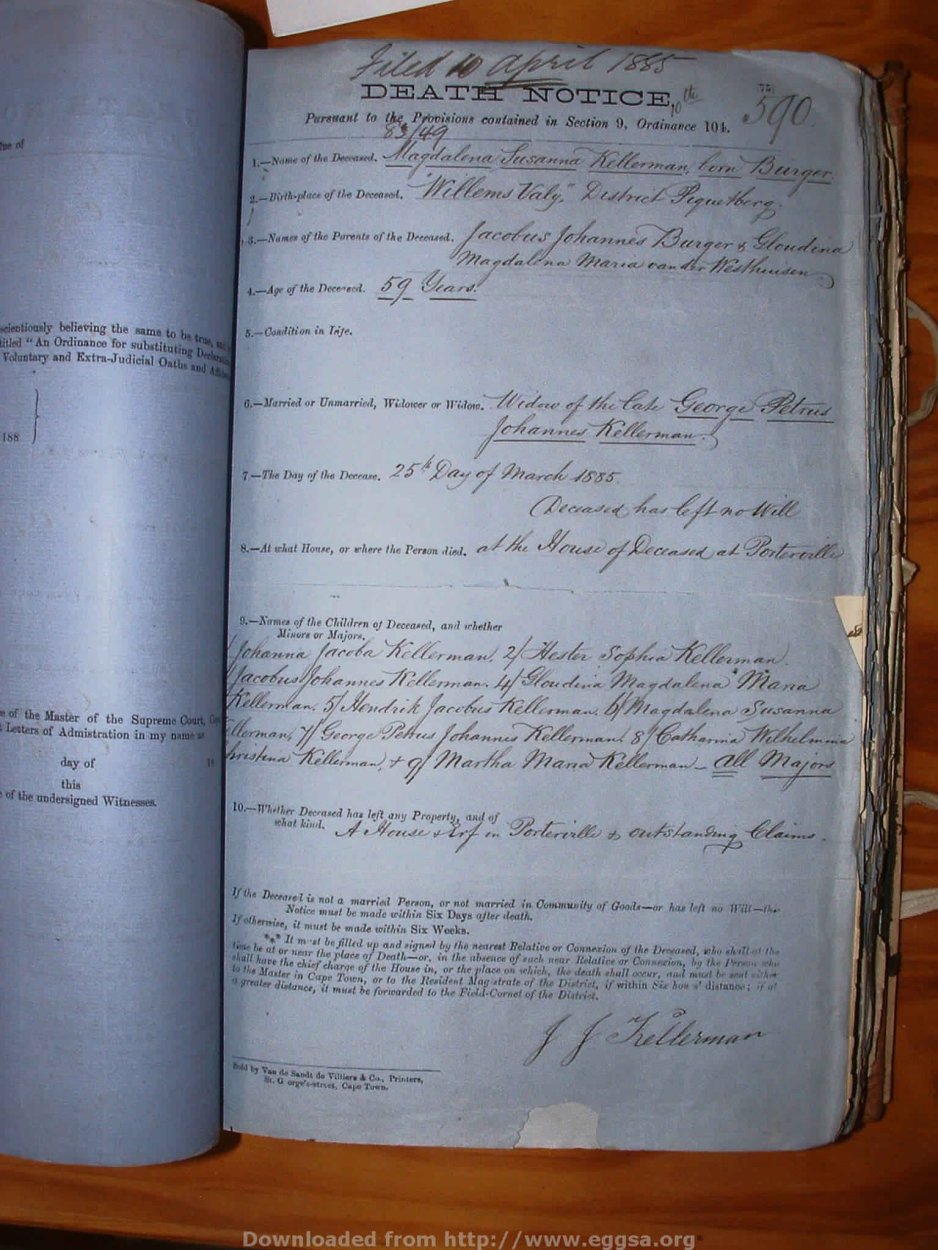 ue of
scientiously believing the same to be true,
titled "An Ordinance for substituting
Voluntary and Extra-Judicial Oaths and
188
e of the Master of the Supreme Court,
Letters of Admistration in my name as
day of 18
this
e of the undersigned Witnesses.
Filed 10 April 1885
DEATH NOTICE,
10th
Pursuant to the Provisions contained in Section 9, Ordinance 104.
590
83/49
1.—Name of the Deceased. Magdalena Susanna Kellerman, born Burger
2.—Birth-place of the Deceased. "Willems Valy," District Piquetberg.
3.—Names of the Parents of the Deceased. Jacobus Johannes Burger & Gloudina
Magdalena Maria van der Westhuisen
4.—Age of the Deceased. 59 Years.
5.—Condition in Life.
6.—Married or Unmarried, Widower or Widow. Widow of the late George Petrus
Johannes Kellerman.
7—The Day of the Decease. 25th Day of March 1885.
Deceased has left no Will
8.—At what House, or where the Person died. at the House of Deceased at Porterville
9.—Names of the Children of Deceased, and whether
Minors or Majors.
1/ Johanna Jacoba Kellerman, 2/ Hester Sophia Kellerman.
Jacobus Johannes Kellerman. 4/ Gloudina Magdalena Maria
Kellerman. 5/ Hendrik Jacobus Kellerman. 6/ Magdalena Susanna
Kellerman, 7/ George Petrus Johannes Kellerman. 8/ Catharina Wilhelmina
Christina Kellerman, & 9/ Martha Maria Kellerman — all Majors
10.—Whether Deceased has left any Property, and of
what kind. A House & Erf in Porterville & outstanding Claims.
If the Deceased is not a married Person, or not married in Community of Goods—or has left no Will—the
Notice must be made within Six Days after death.
If otherwise, it must be made within Six Weeks.
*** It must be filled up and signed by the nearest Relative or Connexion of the Deceased, who shall at the
time be at or near the place of Death—or, in the absence of such near Relative or Connexion, by the Person who
shall have the chief charge of the House in, or the place on which, the death shall occur, and must be sent either
to the Master in Cape Town, or to the Resident Magistrate of the District, if within Six hours' distance; if at
a greater distance, it must be forwarded to the Field-Cornet of the District.
J J Kellerman
Sold by Van de Sandt de Villiers & Co., Printers,
St. George's-street, Cape Town.
Downloaded from http://www.eggsa.org